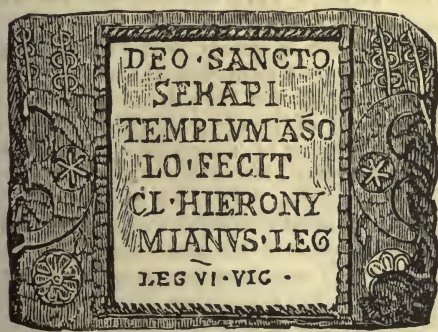 DEO·SANCTO
SERAPI
TEMPLVM ASO
LO·FECIT
CL·HIERONY
MIANVS·LEG
LEG VI·VIC·